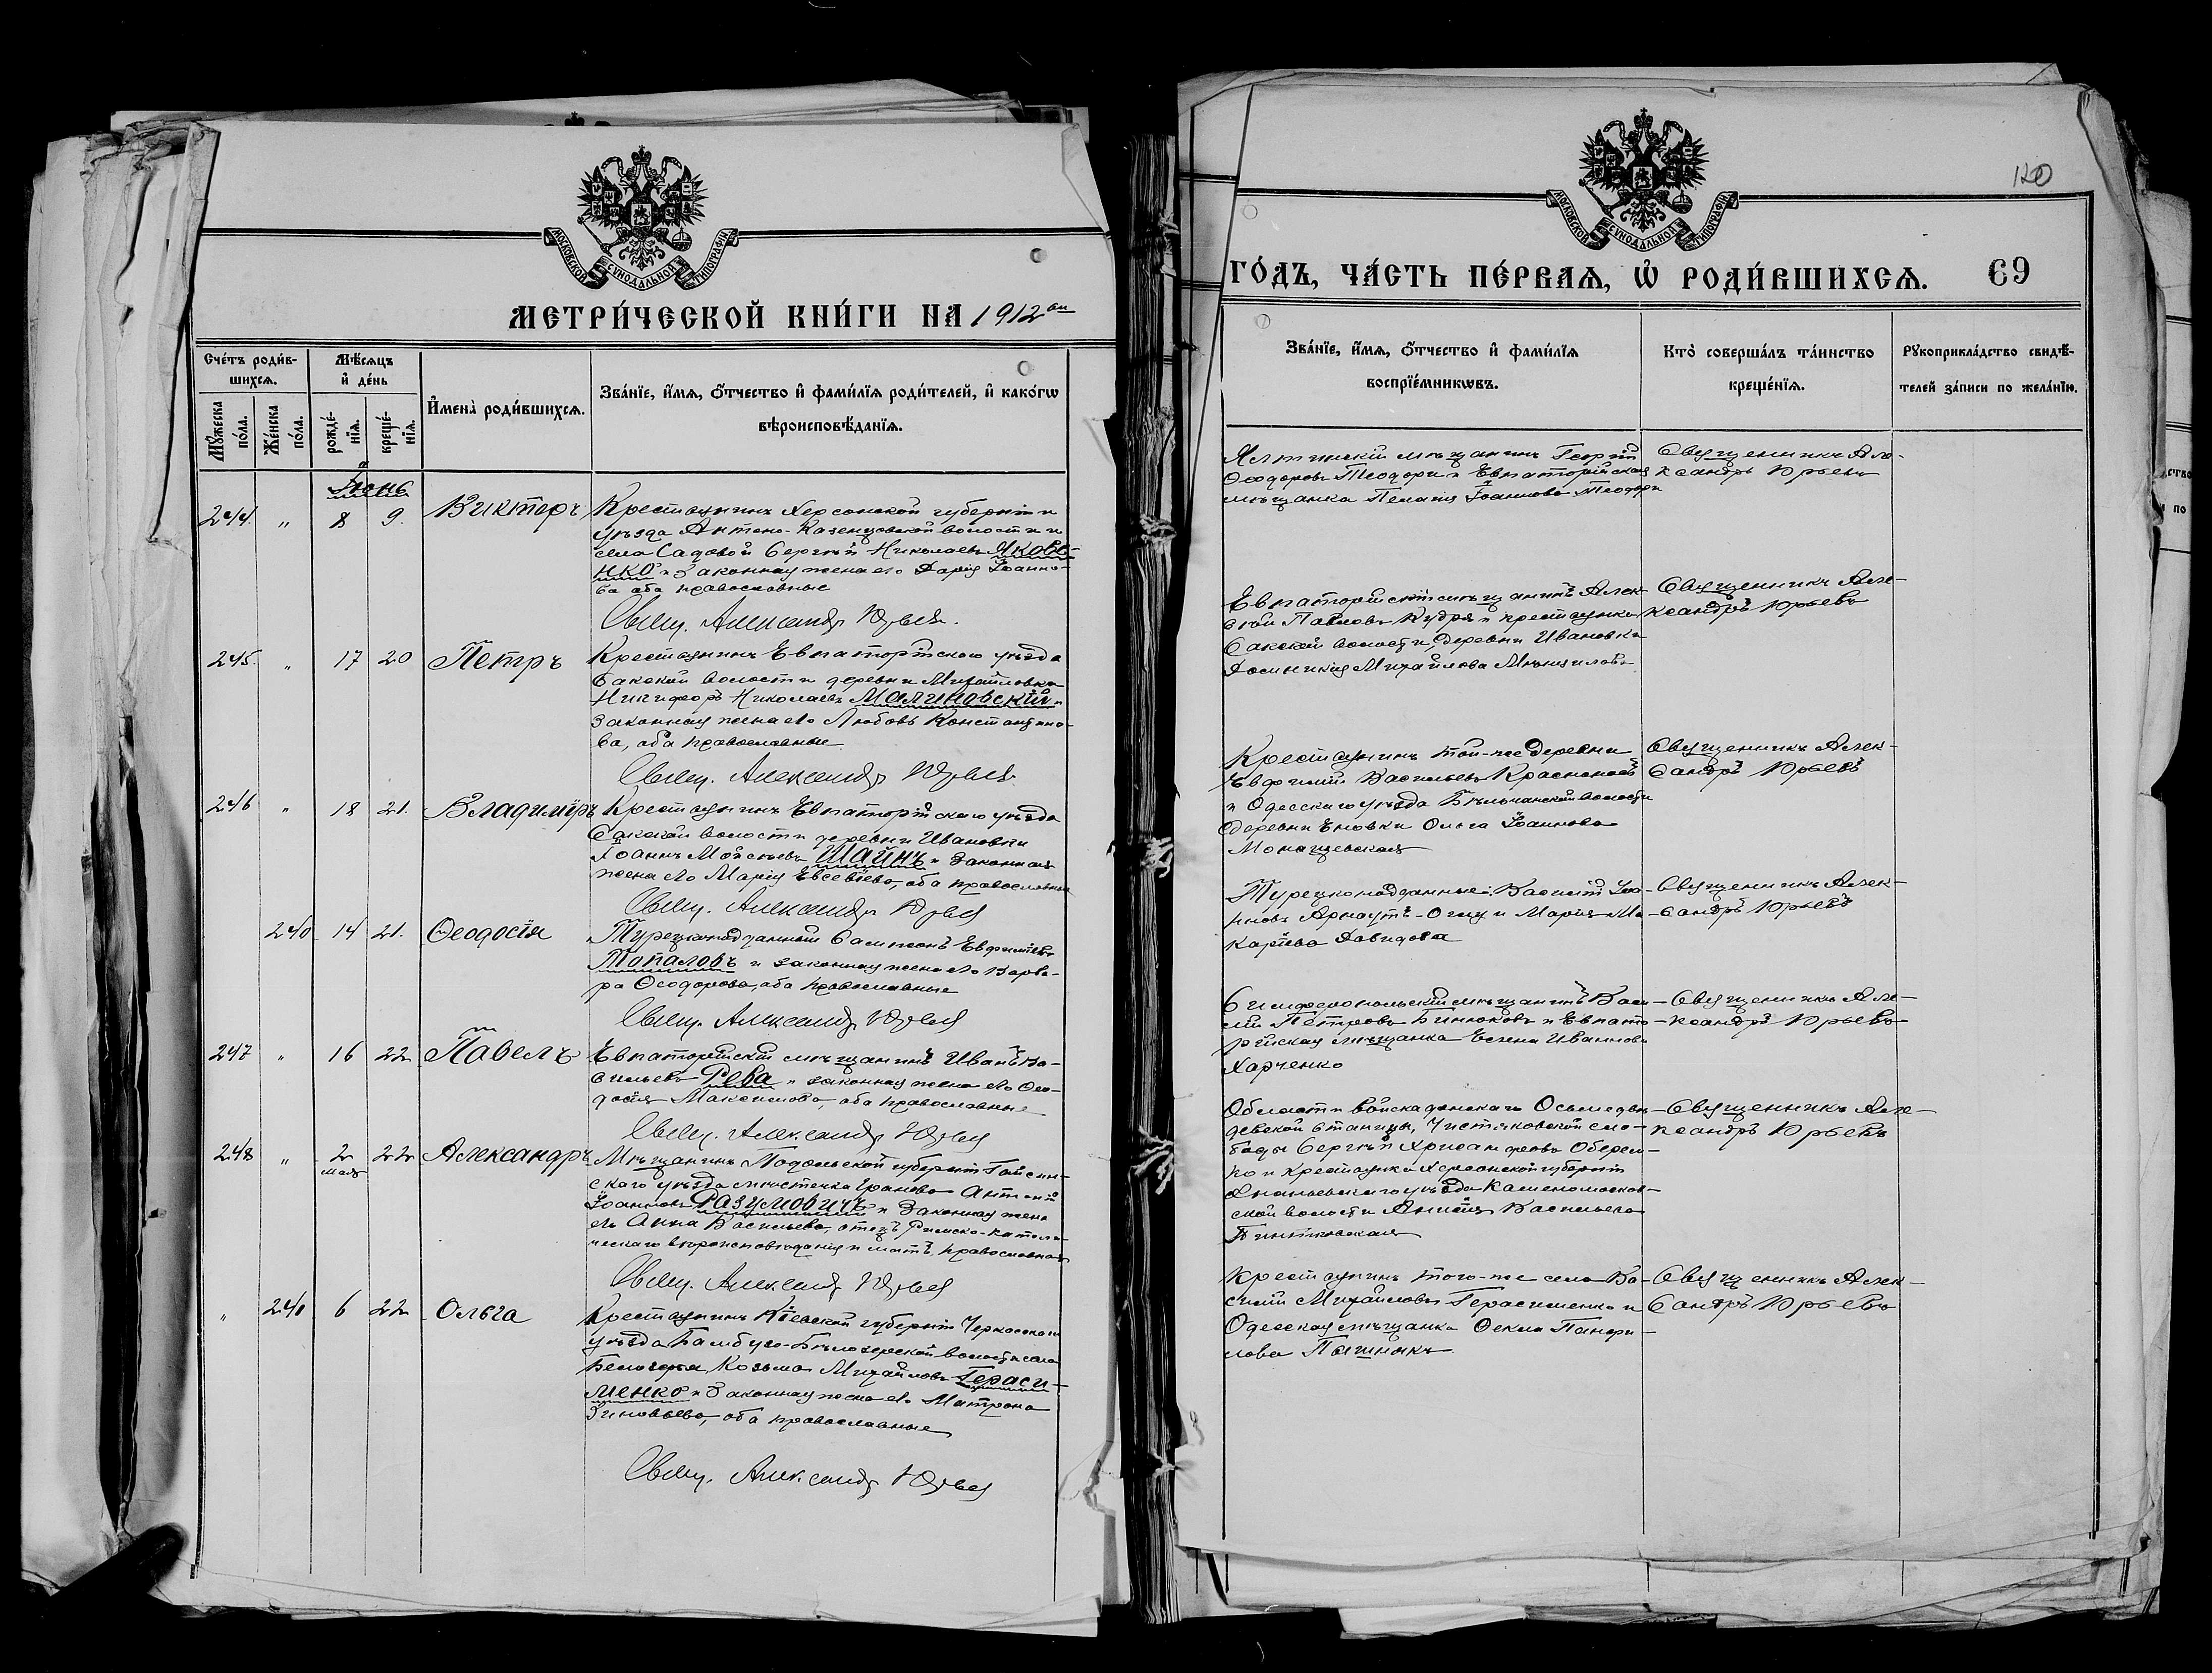 МОСКОВСКОЙ СѴНОДАЛЬНОЙ ТИПОГРАФІИ
МЕТРИ́ЧЕСКОЙ КНИ́ГИ НА 1912 ый
Сче́тъ роди́в-
шихсѧ.
Мѣ́сѧцъ
и҆ де́нь
Мꙋ́жеска
по́ла.
Же́нска
по́ла.
рожде́-
нїѧ.
креще́-
нїѧ.
И҆мена̀ роди́вшихсѧ.
Зва́нїе, и҆́мѧ, ѻ҆́тчество и҆ фами́лїѧ роди́телей, и҆ како́гѡ
вѣроисповѣ́данїѧ.
Іюнь
244. " 8 9. Викторъ
Крестьянинъ Херсонской губерніи и
уѣзда Антоно-Казенцовской волости и
села Садовой Сергѣй Николаевъ Яково-
нко и законная жена его Дарія Іоанно-
ва оба православные
Свящ. Александръ Юрьевъ.
245. " 17 20 Петръ
Крестьянинъ Евпаторійскаго уѣзда
Сакской волости деревни Михайловки
Никифоръ Николаевъ Малиновскій и
законная жена его Любовь Константино-
ва, оба православные
Свящ. Александръ Юрьевъ
246 " 18 21. Владиміръ
Крестьянинъ Евпаторійскаго уѣзда
Сакской волости деревни Ивановки
Іоаннъ Моѵсеевъ Шаинъ и законная
жена его Марія Евсевіева, оба православные
Свящ. Александръ Юрьевъ
240 14 21. Ѳеодосія
Турецкоподданный Сампсонъ Евфиміевъ
Топаловъ и законная жена его Варва-
ра Ѳеодорова, оба православные
Свящ. Александръ Юрьевъ
247 " 16 22 Павелъ
Евпаторійскій мѣщанинъ Иванъ Ва-
сильевъ Рева и законная жена его Ѳео-
досія Максимова, оба православные
Свящ. Александръ Юрьевъ
248 " 2 22 Александръ
мая
Мѣщанинъ Подольской губерніи Гайсин-
скаго уѣзда мѣстечка Граново Антоній
Іоанновъ Разумовичъ и законная жена
его Анна Васильева, отецъ Римско-католи-
ческаго вѣроисповѣданія и мать православная
Свящ. Александръ Юрьевъ
" 241 6 22 Ольга
Крестьянинъ Кіевской губерніи Черкасскаго
уѣзда Бѣлозерской волости села
Козьма Михайловъ Гераси-
менко и законная жена его Матрона
Зиновьева, оба православные
Свящ. Александръ Юрьевъ
120
МОСКОВСКОЙ СѴНОДАЛЬНОЙ ТИПОГРАФІИ
ГО́ДЪ, ЧА́СТЬ ПЕ́РВАѦ, Ѡ҆ РОДИ́ВШИХСѦ. 69
Зва́нїе, и҆́мѧ, ѻ҆́тчество и҆ фами́лїѧ
воспрїе́мникѡвъ.
Кто̀ соверша́лъ та́инство
креще́нїѧ.
Рꙋкоприкла́дство свидѣ́-
телей за́писи по жела́нїю.
Ялтинскій мѣщанинъ Георгій
Ѳеодоровъ Теодори и Евпаторійская
мѣщанка Пелагія Іоаннова Теодори
Священникъ Але-
ксандръ Юрьевъ
Евпаторійскій мѣщанинъ Алек-
сѣй Павловъ Кудря и крестьянка
Сакской волости, деревни Ивановки
Доминикія Михайлова
Священникъ Але-
ксандръ Юрьевъ
Крестьянинъ той-же деревни
Евфимій Васильевъ
и Одесскаго уѣзда волости
деревни Еновки Ольга Іоаннова
Монашевская
Священникъ Алек-
сандръ Юрьевъ
Турецкоподданные: Василій Іоа-
нновъ Арнаутъ-Оглу и Марія Ма-
карьева Давидова
Священникъ Алек-
сандръ Юрьевъ
Симферопольскій мѣщанинъ Васи-
лій Петровъ Бинюковъ и Евпато-
рійская мѣщанка Елена Иванова
Харченко
Священникъ Але-
ксандръ Юрьевъ
Области войска донскаго
станицы, Чистяковской сло-
боды Сергѣй Хрисанфовъ
и крестьянка Херсонской губерніи
Ананьевскаго уѣзда
волости Васильева
Священникъ Але-
ксандръ Юрьевъ
Крестьянинъ того-же села Ва-
силій Михайловъ Герасименко и
Одесская мѣщанка Ѳекла Панфи-
лова
Священникъ Алек-
сандръ Юрьевъ